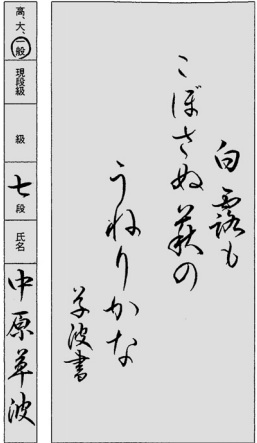 白露も
こぼさぬ萩の
うねりかな
草波書
高、大、一般
現段級
級
七段
氏名
中原草波